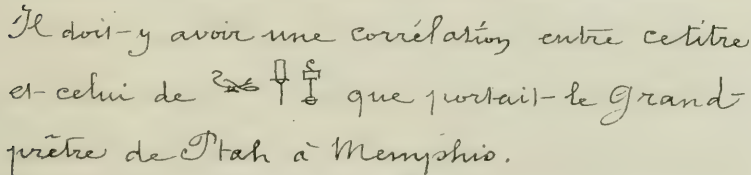 Il doit y avoir une corrélation entre ce titre
et celui de que portait le Grand-
prêtre de Ptah à Memphis.